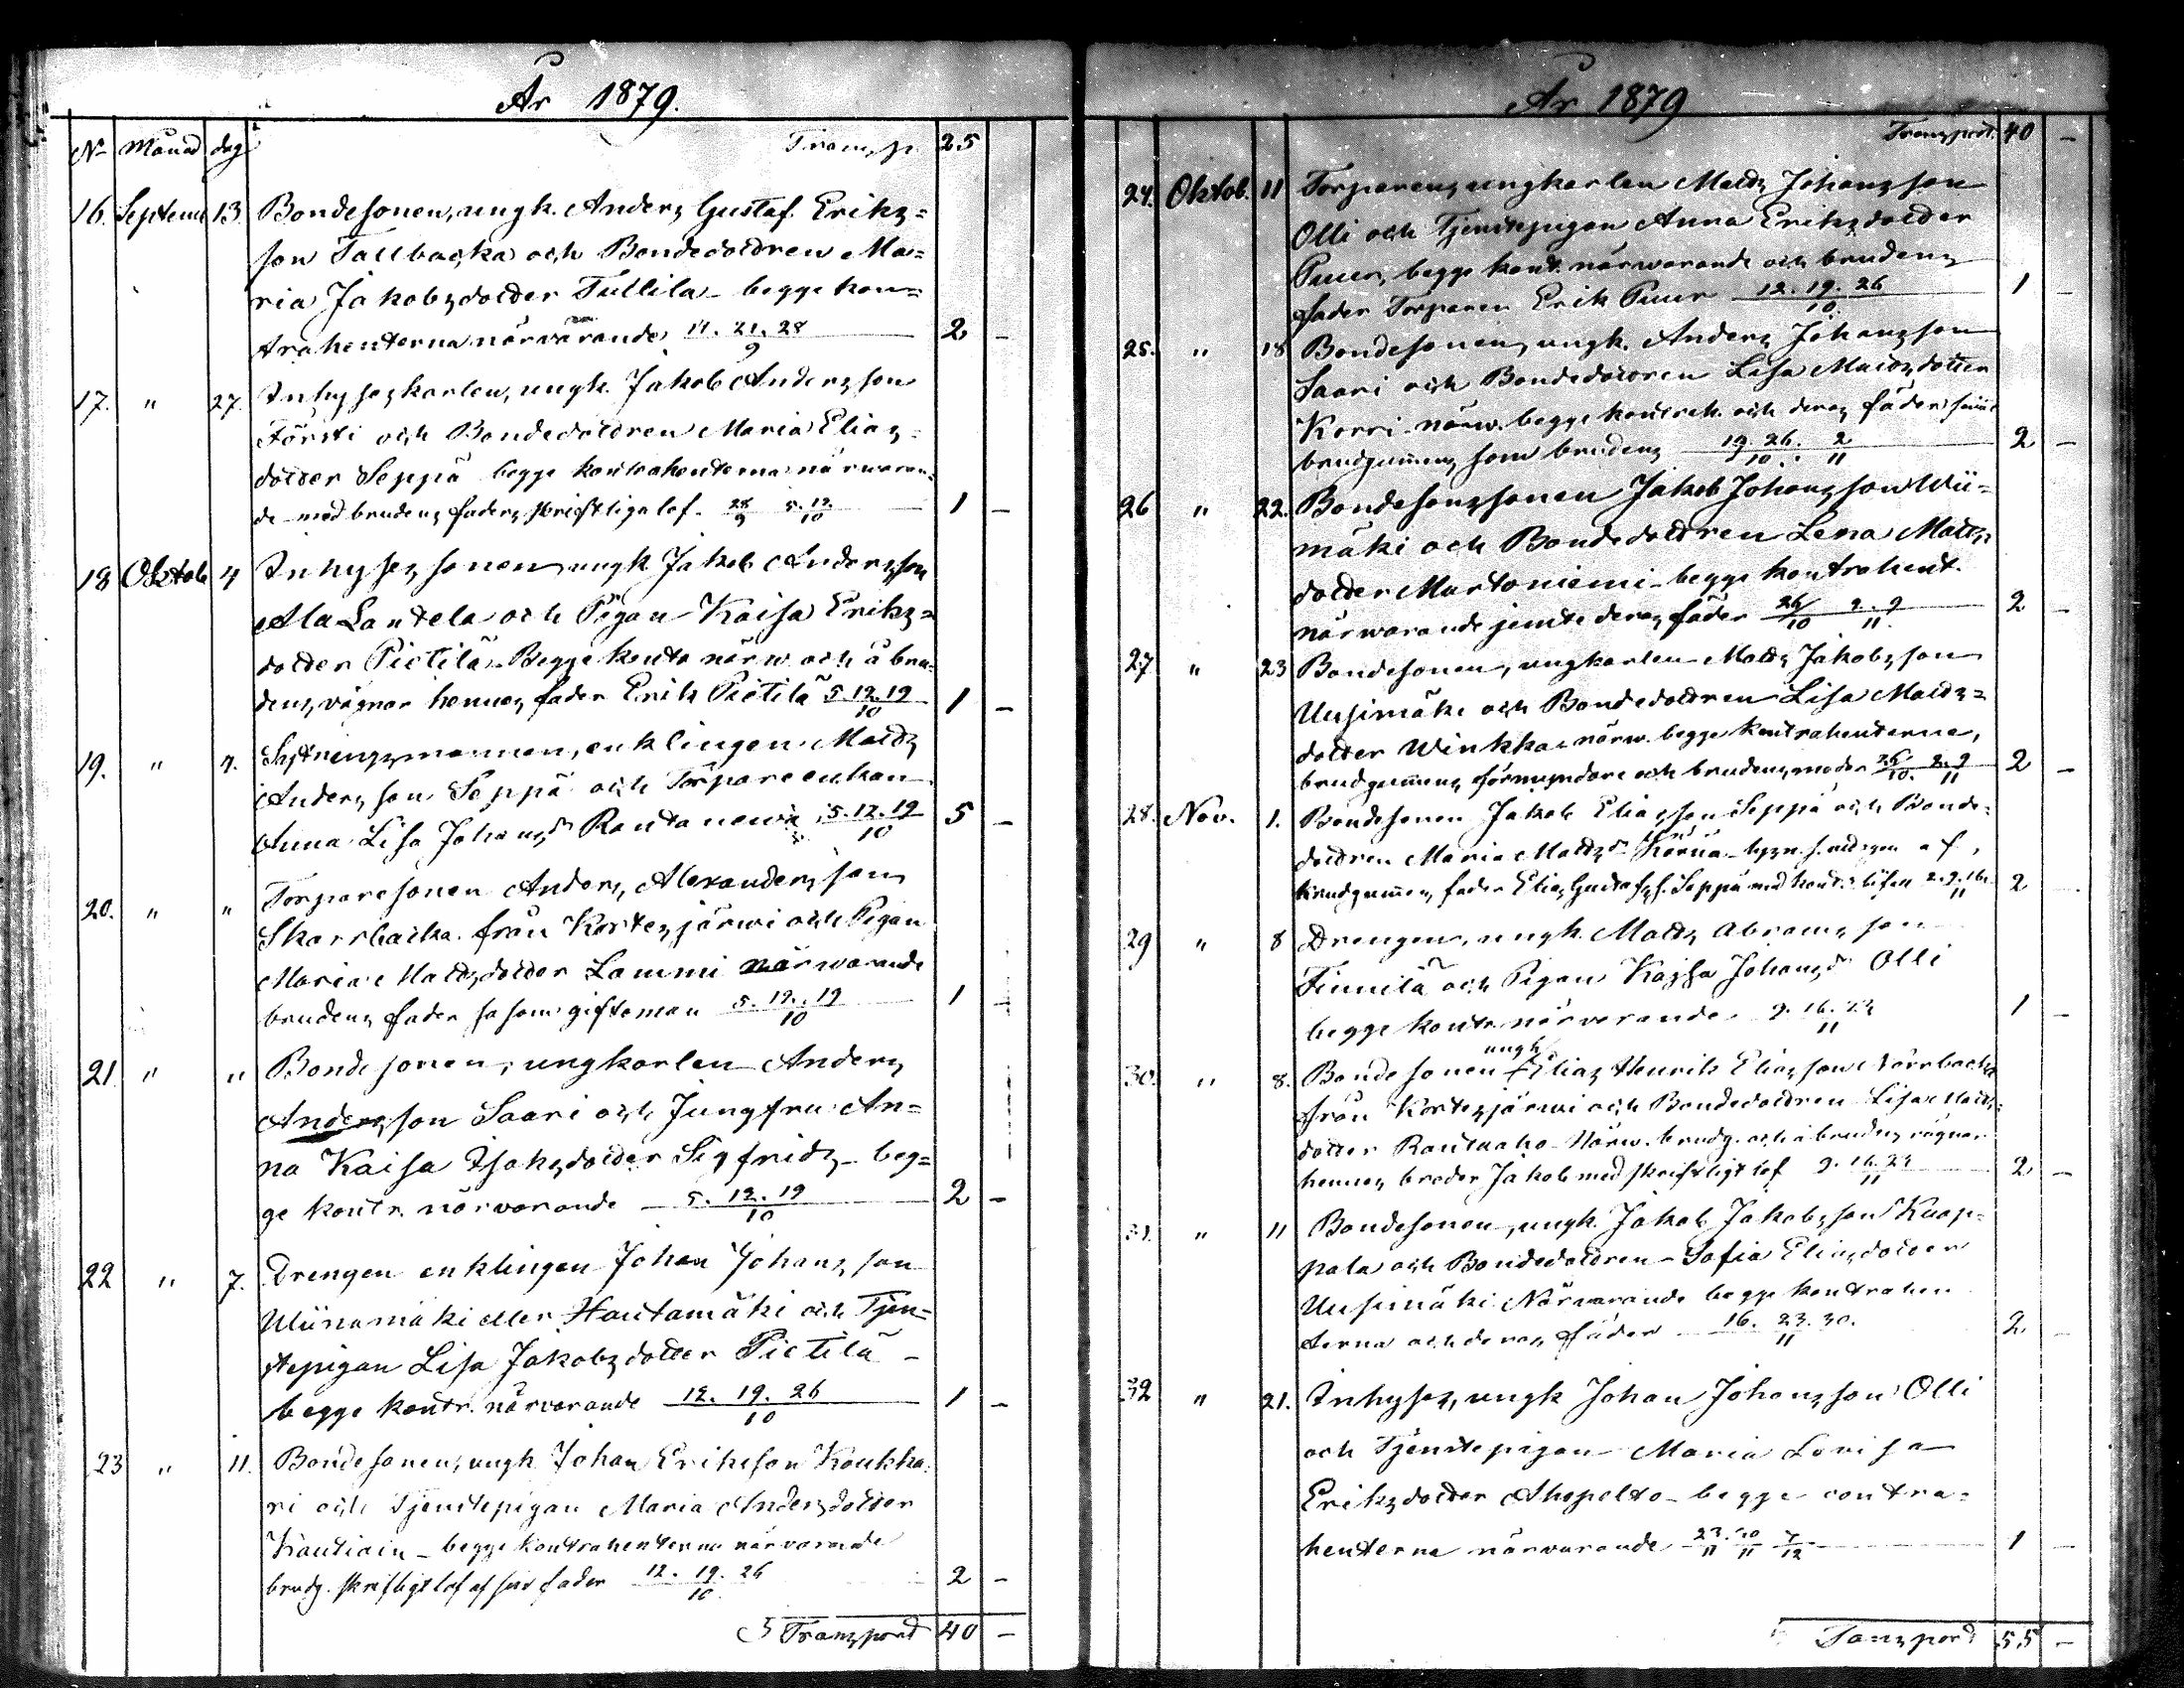 År 1879.
No Månad dag Transp. 25
16. Septem 13. Bondesonen, ungk. Anders Gustaf Eriks=
son Tallbacka och Bondedottren Ma=
ria Jakobsdotter Tullila begge kon=
trahenterna närvarande 14. 21. 28 / 9 2 –
17. " 27. Inhyseskarlen, ungk. Jakob Andersson
Försti och Bondedottren Maria Elias=
dotter Seppä begge kontrahenterna närvaran=
de med brudens faders skriftliga lof. 28/9 5. 12/10 1 –
18 Oktob 4 Inhyses sonen ungk Jakob Andersson
Ala Lantela och Pigan Kaisa Eriks=
dotter Pietilä. Begge kontr närv och å bru=
dens vägnar hennes fader Erik Pietilä 5. 12. 19 / 10 1 –
19. " 4. enklingen Matts
Andersson Seppä och Torpare enkan
Anna Lisa Johansdr 5. 12. 19 / 10 5 –
20. " " Torparesonen Anders Alexandersson
Skarsbacka från Kortesjärvi och Pigan
Maria Mattsdotter Lammi närvarande
brudens fader såsom giftoman 5. 12. 19 / 10 1 –
21 " " Bondesonen, ungkarlen Anders
Andersson Saari och Jungfru An=
na Kaisa Isaksdotter Sigfrids beg=
ge kontr. närvarande 5. 12. 19 / 10 2 –
22 " 7. Drengen enklingen Johan Johansson
Wiinamäki eller Hautamäki och Tjen=
stepigan Lisa Jakobsdotter Pietilä –
begge kontr. närvarande 12. 19. 26 / 10 1 –
23 " 11. Bondesonen, ungk Johan Eriksson Koukka=
ri och Tjenstepigan Maria Andersdotter
Kautiain – begge kontrahenterna närvarande
brudg. skriftligt lof af sin fader 12. 19. 26 / 10 2 –
Transport 40 –
År 1879
Transport. 40 –
24. Oktob. 11 Torparens ungkarlen Matts Johansson
Olli och Tjenstepigan Anna Eriksdotter
Puur, begge kontr. närvarande och brudens
fader Torparen Erik Puur 12. 19. 26 / 10 1 –
25. " 18 Bondesonen, ungk. Anders Johansson
Saari och Bondedottren Lisa Mattsdotter
Korri närv. begge kontrah. och deras fäder såväl
brudgummens som brudens 19. 26. / 10 2 / 11 2 –
26 " 22. Bondesonssonen Jakob Johansson Wii=
mäki och Bondedottren Lena Matts=
dotter Martoniemi begge kontrahent.
närvarande jemte deras fäder 26/10 2. 9 / 11 2 –
27 " 23 Bondesonen, ungkarlen Matts Jakobsson
Uusimäki och Bondedottren Lisa Matts=
dotter Winkka närv. begge kontrahenterna,
brudgummens förmyndare och brudens moder 26/10. 2. 9 / 11 2 –
28. Nov. 1. Bondesonen Jakob Eliasson Seppä och Bonde=
dottren Maria Mattsdr
brudgummens fader Elias Gustafss. Seppä med 2. 9. 16. / 11 2
29 " 8 Drengen, ungk. Matts Abramsson
Finnilä och Pigan Kajsa Johansdr Olli
begge kontr. närvarande 9. 16. 23 / 11 1 –
30. " 8. Bondesonen ungk Elias Henrik Eliasson Norrbacka
från Kortesjärvi och Bondedottren Lisa Matts=
dotter Rautaaho Närv. brudg. och å brudens vägnar
hennes broder Jakob med skriftligt lof 9. 16. 23 / 11 2 –
31. " 11 Bondesonen, ungk. Jakob Jakobsson Kaap=
pala och Bondedottren Sofia Eliasdotter
Uusimäki Närvarande begge kontrahen
terna och deras fäder 16. 23. 30. / 11 2 –
32 " 21. Inhyses, ungk Johan Johansson Olli
och Tjenstepigan Maria Lovisa
Eriksdotter Ahopelto begge contra=
henterna närvarande 23. 30 / 11 7/12 1 –
Transport 55 –